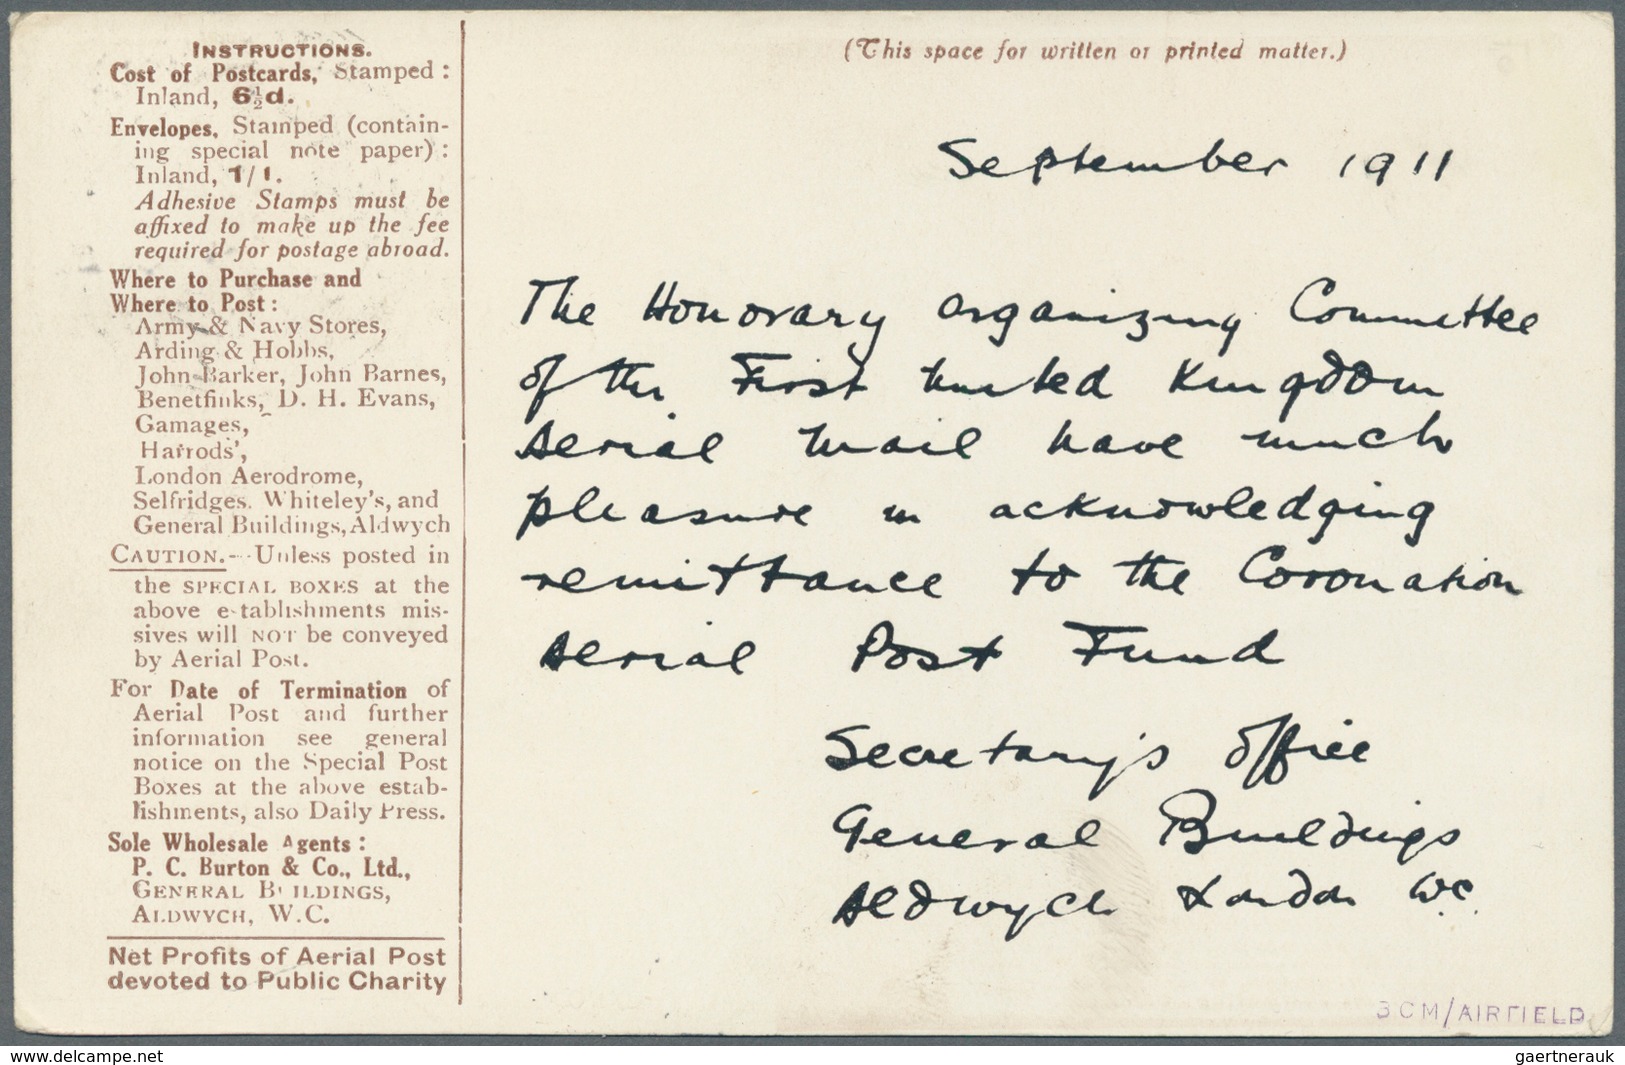 INSTRUCTIONS.
Cost of Postcards, Stamped :
Inland, 6½d.
Envelopes, Stamped (contain-
ing special note paper) :
Inland, 1/1.
Adhesive Stamps must be
affixed to make up the fee
required for postage abroad.
Where to Purchase and
Where to Post :
Army & Navy Stores,
Arding & Hobbs,
John Barker, John Barnes,
Benetfinks, D. H. Evans,
Gamages,
Harrods',
London Aerodrome,
Selfridges, Whiteley's, and
General Buildings, Aldwych
CAUTION.—Unless posted in
the SPECIAL BOXES at the
above establishments mis-
sives will NOT be conveyed
by Aerial Post.
For Date of Termination of
Aerial Post and further
information see general
notice on the Special Post
Boxes at the above estab-
lishments, also Daily Press.
Sole Wholesale Agents :
P. C. Burton & Co., Ltd.,
GENERAL BUILDINGS,
ALDWYCH, W.C.
Net Profits of Aerial Post
devoted to Public Charity
(This space for written or printed matter.)
September 1911
The Honorary Organizing Committee
of the First United Kingdom
Aerial Mail have much
pleasure in acknowledging
remittance to the Coronation
Aerial Post Fund
Secretary's Office
General Buildings
Aldwych London W.C.
BCM/AIRFIELD
www.delcampe.net
gaertnerauk